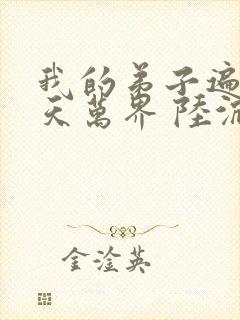 我的弟子遍
天萬界 陸沉
金淦英